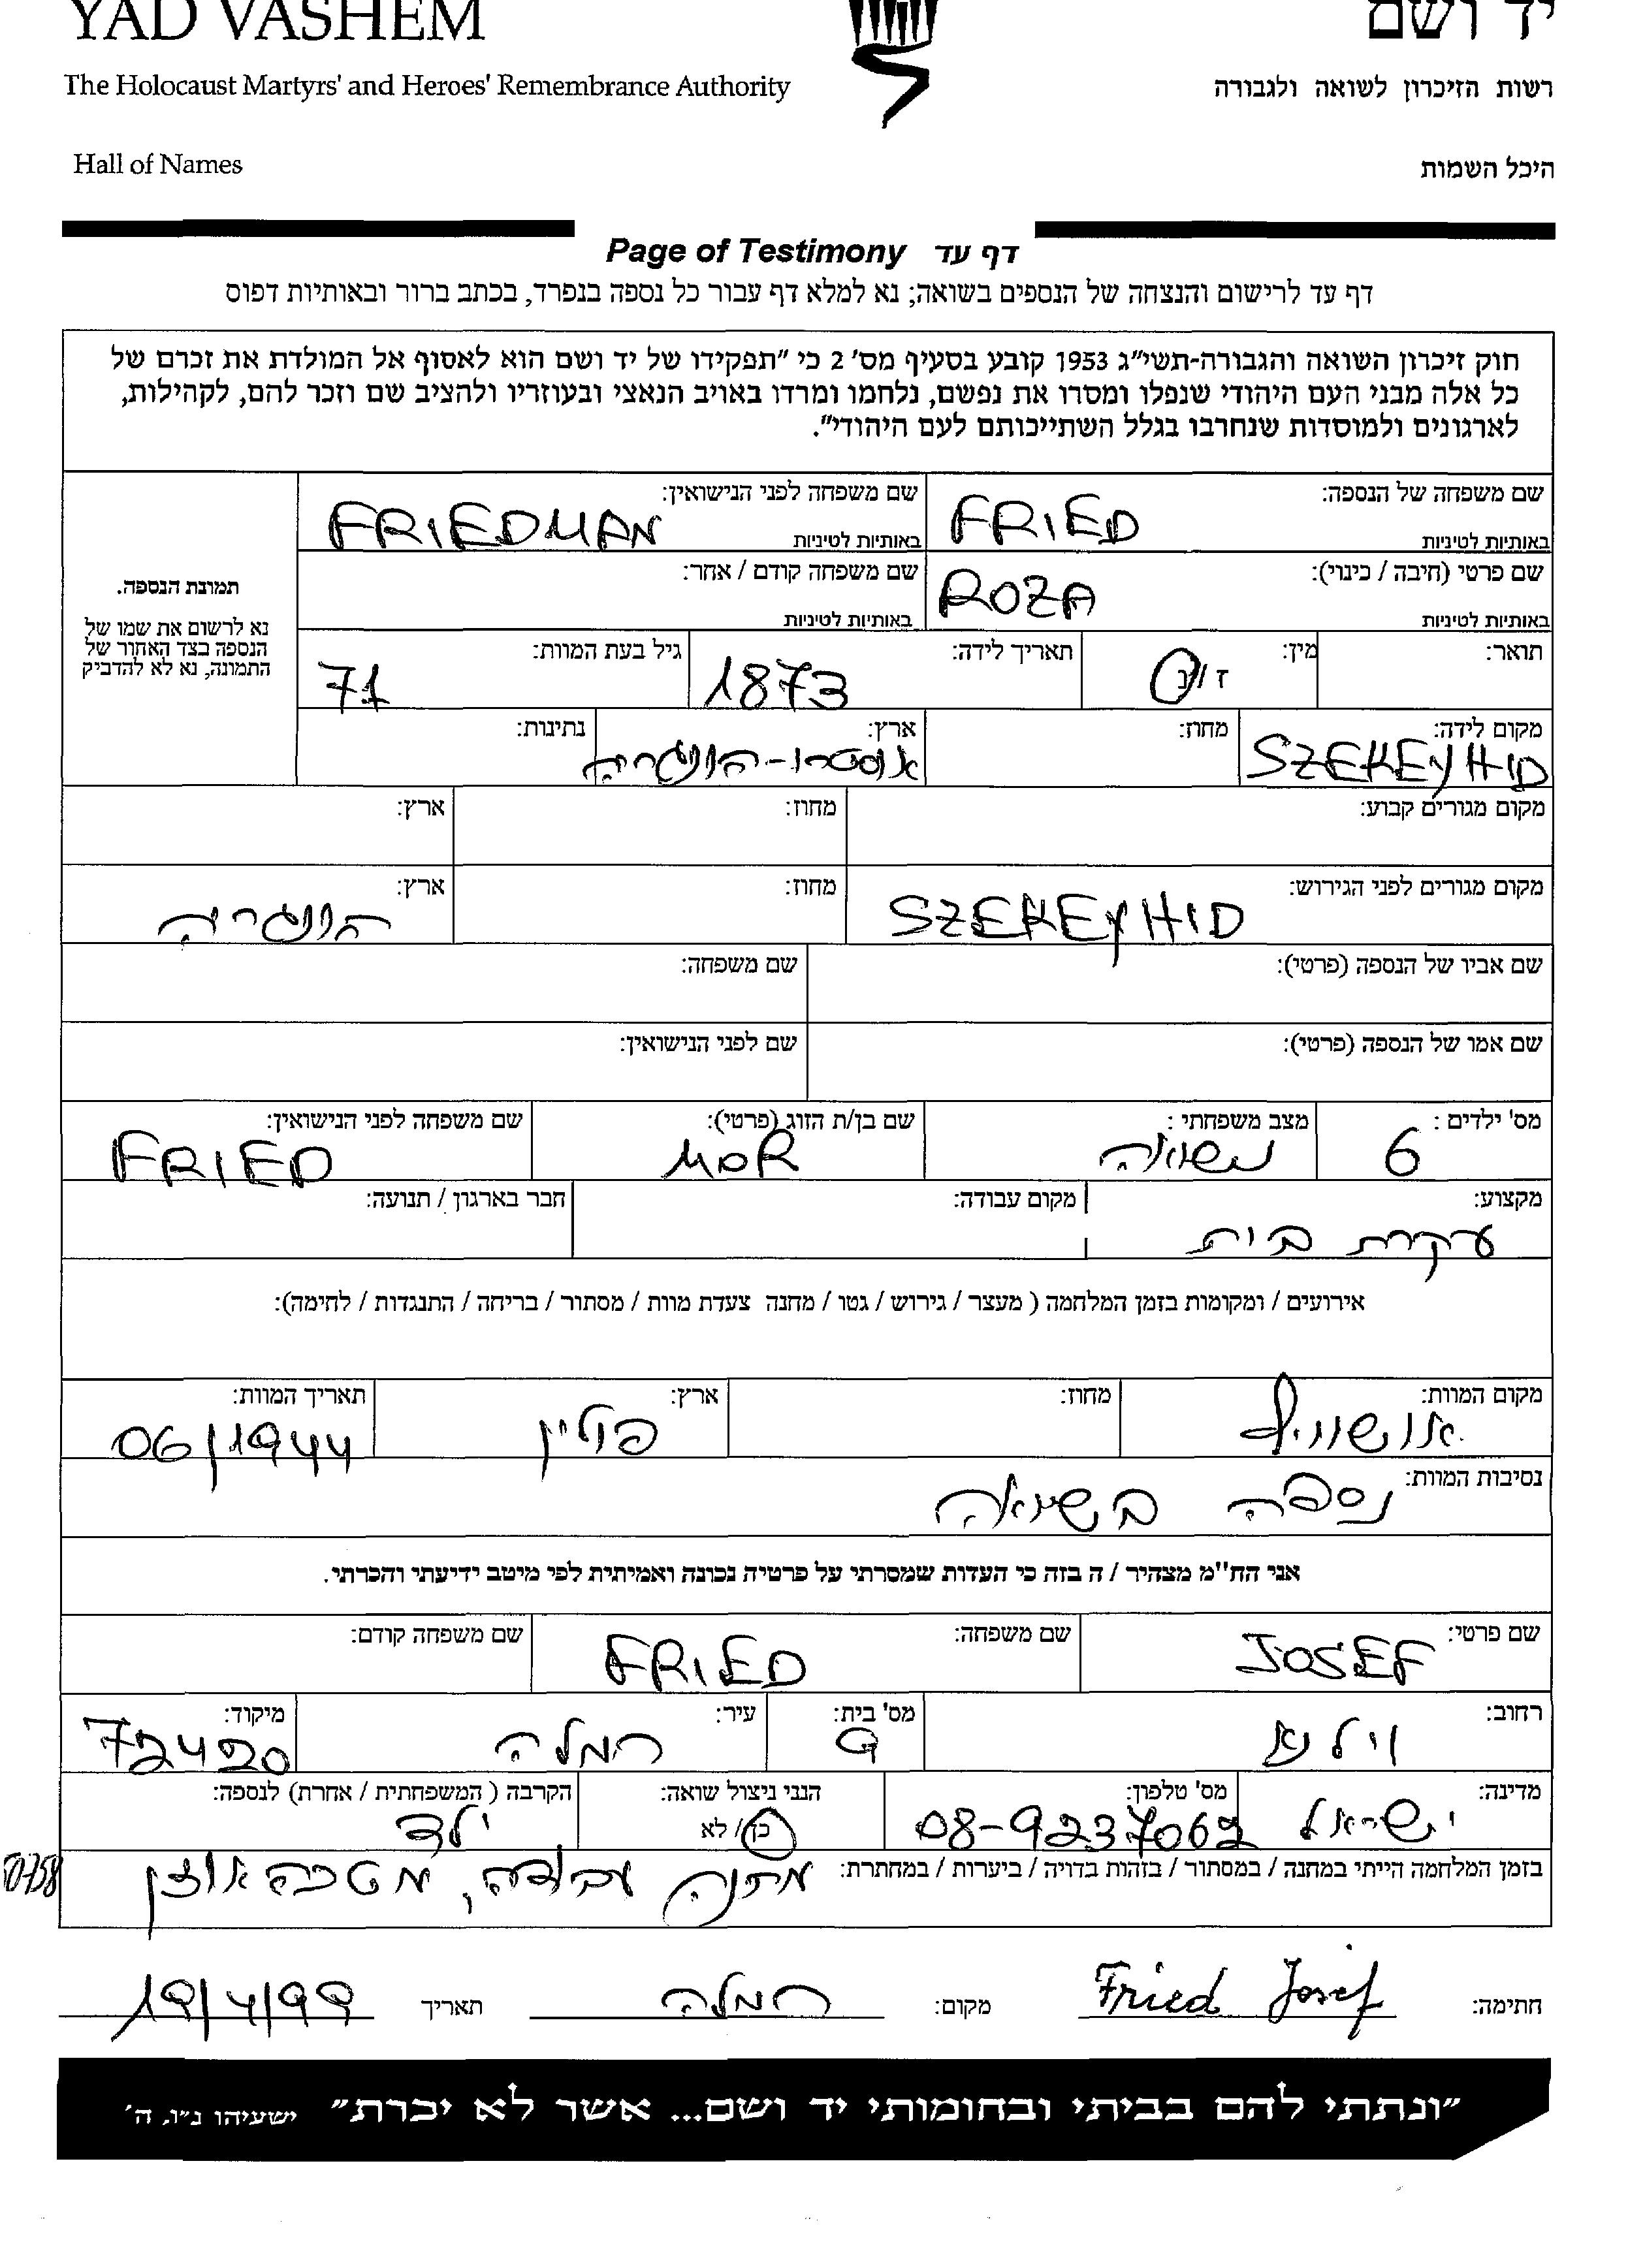 YAD VASHEM יד ושם
The Holocaust Martyrs' and Heroes' Remembrance Authority רשות הזיכרון לשואה ולגבורה
Hall of Names היכל השמות
Page of Testimony דף עד
דף עד לרישום והנצחה של הנספים בשואה; נא למלא דף עבור כל נספה בנפרד, בכתב ברור ובאותיות דפוס
חוק זיכרון השואה והגבורה-תשי"ג 1953 קובע בסעיף מס' 2 כי "תפקידו של יד ושם הוא לאסוף אל המולדת את זכרם של
כל אלה מבני העם היהודי שנפלו ומסרו את נפשם, נלחמו ומרדו באויב הנאצי ובעוזריו ולהציב שם וזכר להם, לקהילות,
לארגונים ולמוסדות שנחרבו בגלל השתייכותם לעם היהודי".
שם משפחה של הנספה: FRIED באותיות לטיניות
שם משפחה לפני הנישואין: FRIEDMAN באותיות לטיניות
שם פרטי (חיבה / כינוי): ROZA באותיות לטיניות
שם משפחה קודם / אחר: באותיות לטיניות
תמונת הנספה.
נא לרשום את שמו של
הנספה בצד האחור של
התמונה, נא לא להדביק
תואר: מין: ז / נ תאריך לידה: 1873 גיל בעת המוות: 71
מקום לידה: SZEKEYHID מחוז: ארץ: אוסטרו-הונגריה נתינות:
מקום מגורים קבוע: מחוז: ארץ:
מקום מגורים לפני הגירוש: SZEKEYHID מחוז: ארץ: הונגריה
שם אביו של הנספה (פרטי): שם משפחה:
שם אמו של הנספה (פרטי): שם לפני הנישואין:
מס' ילדים: 6 מצב משפחתי: נשואה שם בן/ת הזוג (פרטי): MOR שם משפחה לפני הנישואין: FRIED
מקצוע: עקרת בית מקום עבודה: חבר בארגון / תנועה:
אירועים / ומקומות בזמן המלחמה ( מעצר / גירוש / גטו / מחנה צעדת מוות / מסתור / בריחה / התנגדות / לחימה):
מקום המוות: אושוויץ מחוז: ארץ: פולין תאריך המוות: 06/1944
נסיבות המוות: נספה בשואה
אני הח"מ מצהיר / ה בזה כי העדות שמסרתי על פרטיה נכונה ואמיתית לפי מיטב ידיעתי והכרתי.
שם פרטי: JOSEF שם משפחה: FRIED שם משפחה קודם:
רחוב: וילנא מס' בית: 9 עיר: רמלה מיקוד: 72420
מדינה: ישראל מס' טלפון: 08-9237062 הנני ניצול שואה: כן / לא הקרבה ( המשפחתית / אחרת) לנספה: ילד
בזמן המלחמה הייתי במחנה / במסתור / בזהות בדויה / ביערות / במחתרת: מחנה עבודה,
חתימה: Fried Josef מקום: רמלה תאריך 19/4/99
"ונתתי להם בביתי ובחומותי יד ושם... אשר לא יכרת" ישעיהו נ"ו, ה'